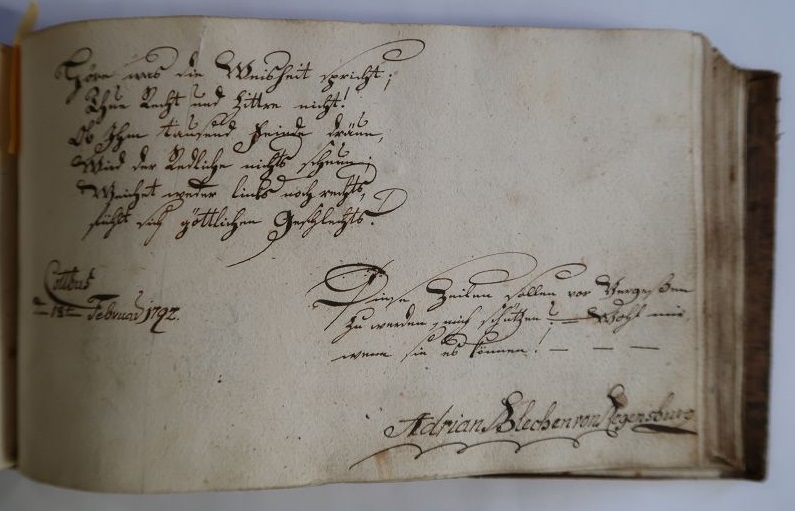 Höre was die Weisheit spricht;
Thue Recht und Zittre nicht!
Ob Ihm tausend Feinde dräun,
Wird der Redliche nichts scheun;
Weichet weder links noch rechts,
fühlt sich göttlichen Geschlechts.
Cottbus
18 Februar 1792.
Diese Zeilen sollen vor Vergeßen
zu werden, mich schützen? — Wohl mir,
wenn sie es können! — — —
Adrian Blechen von Regensburg